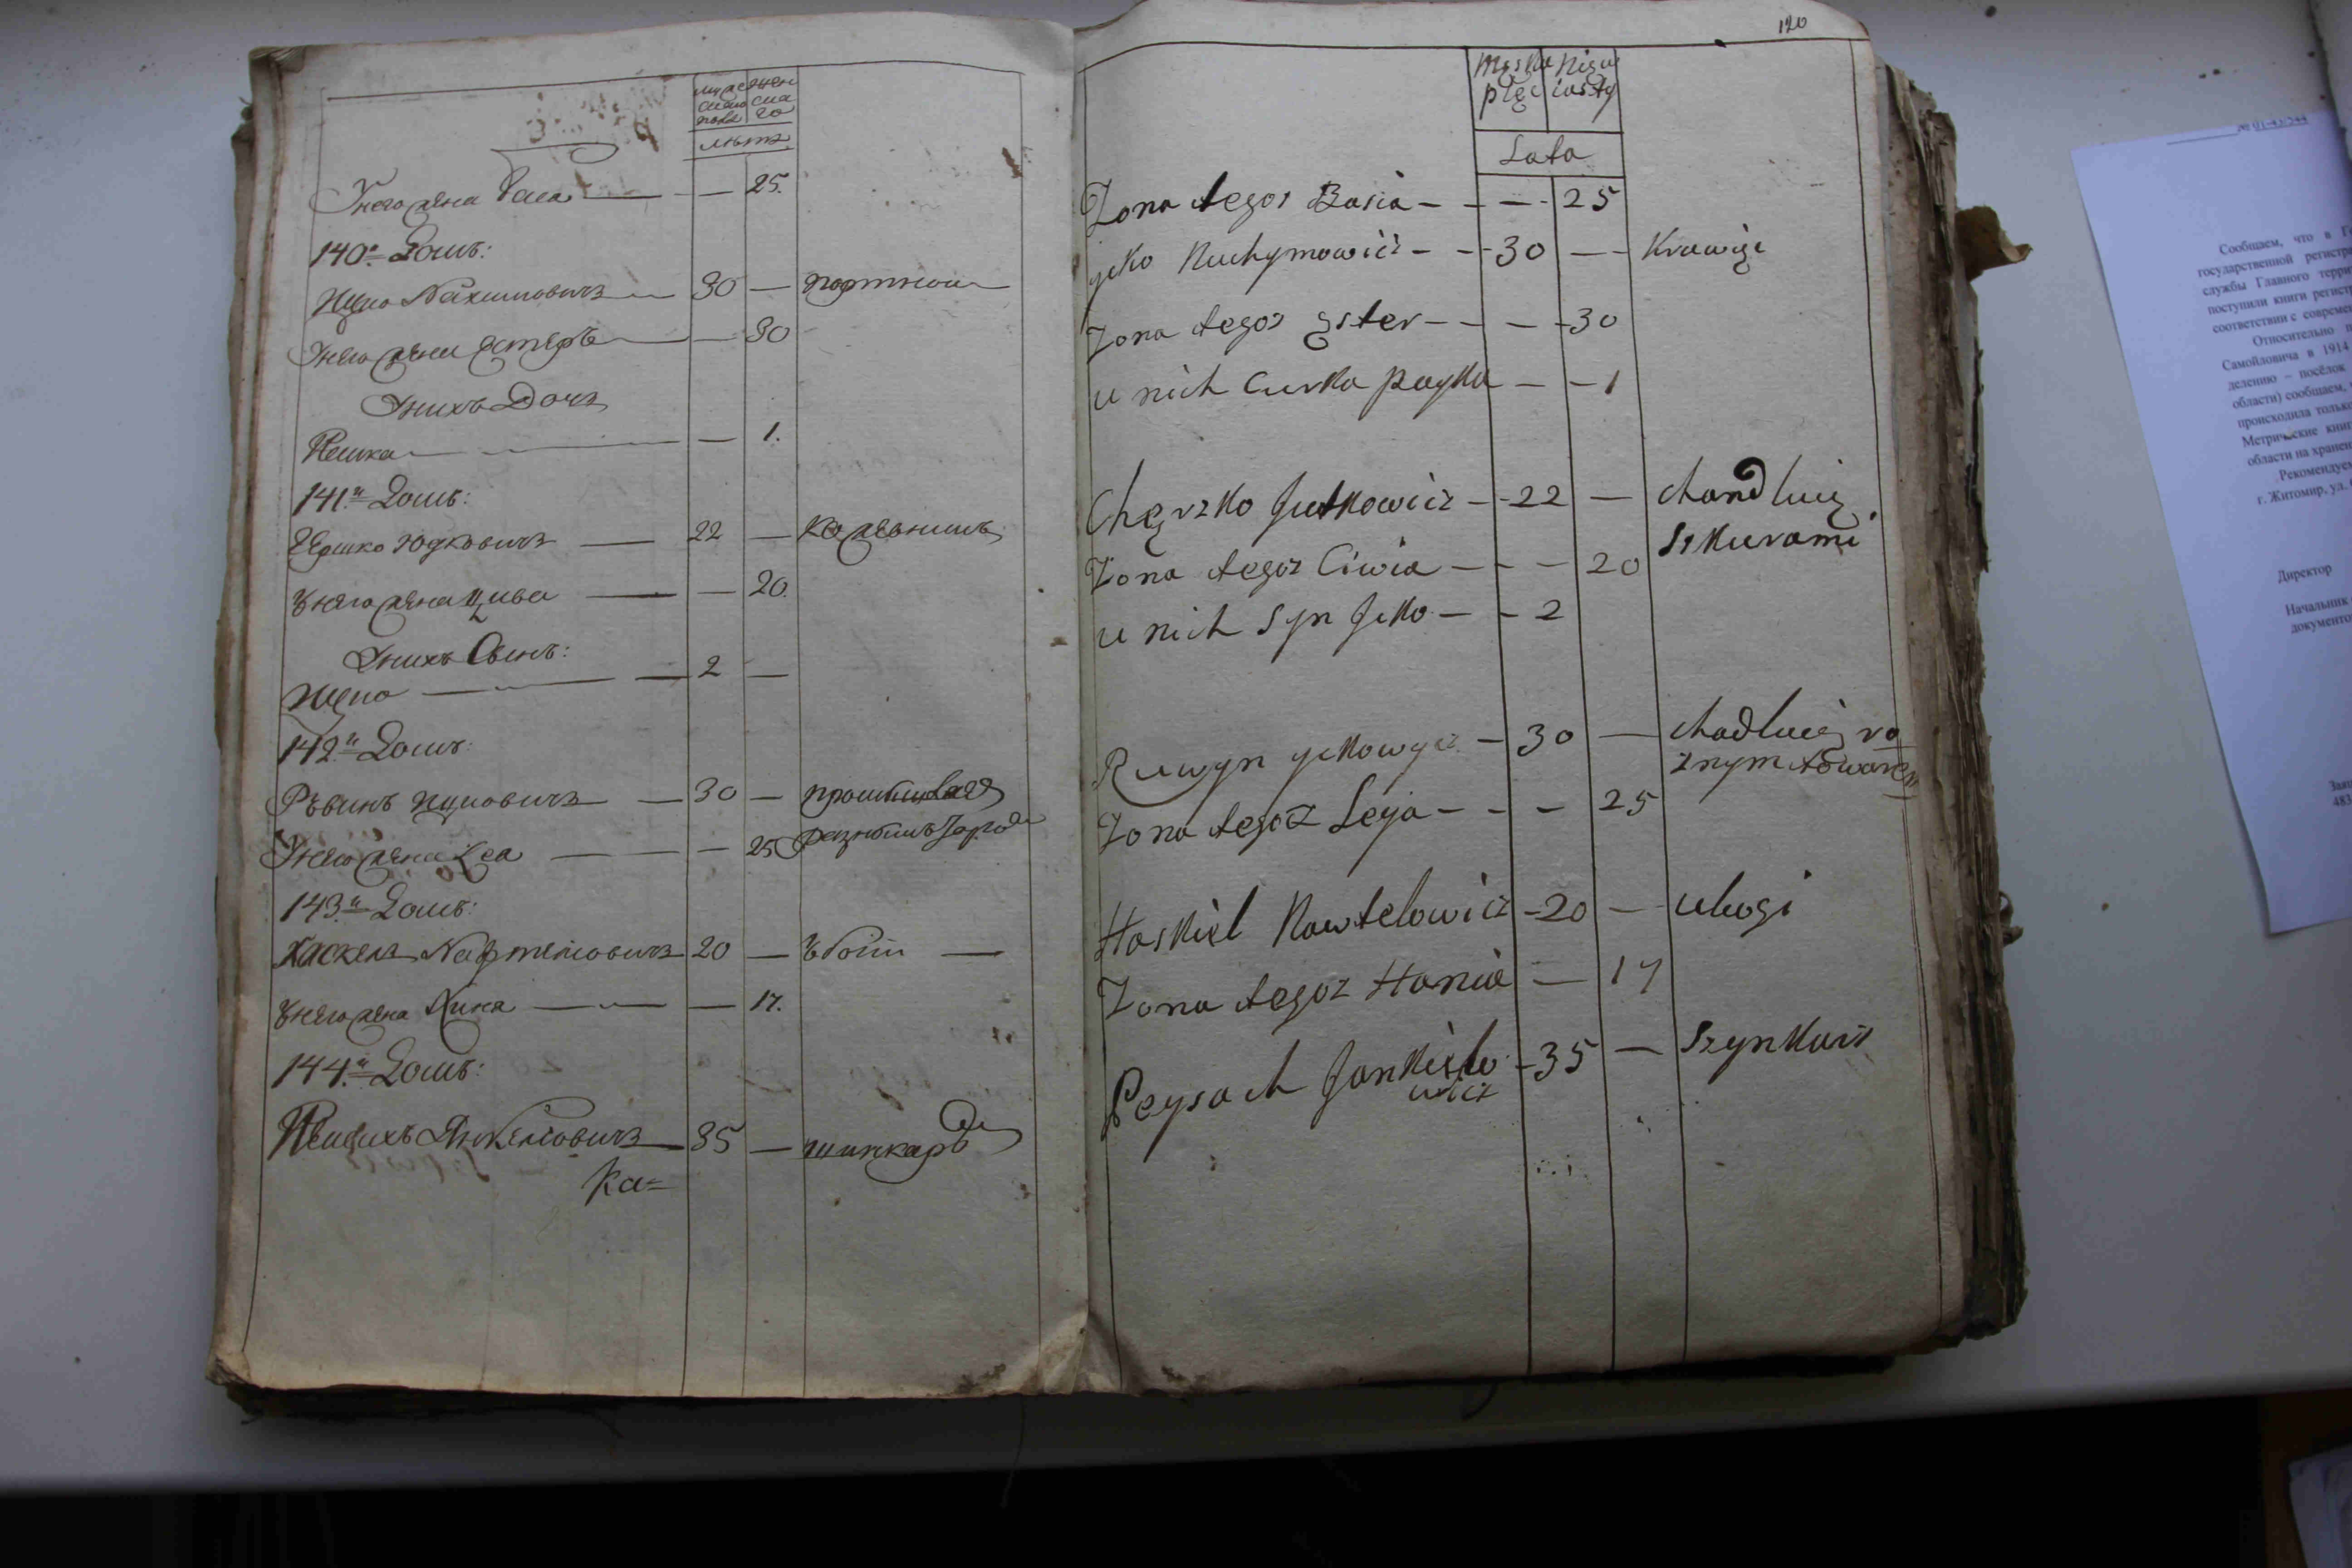 мужеска пола
женскаго
лѣтъ
Унего жена Бася — — 25.
140й Домъ:
Ицко Нахимовичъ — 30 — портной
Унего жена Эстеръ — — 30
Унихъ Дочь
Пешка — — 1.
141й Домъ:
Гершко Юдковичъ — 22 — кожевникъ
Унего жена Цива — — 20.
Унихъ Сынъ:
Ицко — 2 —
142й Домъ:
Рѣвинъ Ицковичъ — 30 —
Унего жена Лея — — 25
143й Домъ:
Хаскель Нафтеловичъ 20 — Убогій —
Унего жена Хиня — — 17.
144й Домъ:
Пейсихъ Янкелёовичъ — 35 — шинкарь
Ка=
120
Męska płeć
Niewiasty
Lata
Zona tegoz Basia — — — 25
ycko Nuchymowicz — — 30 — — Krawięc
Zona tegoz ester — — — 30
u nich Curka payka — — 1
Cherszko Jutkowicz — 22 — chandluię
Szkurami
Zona tegoz Ciwia — — — 20
u nich Syn Jcko — — 2
Ruwyn yckowycz — 30 — chadluię ro
znym towarem
Zona tegoz Leya — — — 25
Haskiel Nawtelowicz — 20 — ubogi
Zona tegoz Hania — 17
Peysach Jankielo
wicz — 35 — Szynkarz
№ 01-43/544
Сообщаем, что в
государственной
службы Главного
поступили книги
соответствии с
Относительно
Самойловича в 1914
делению – посёлок
области) сообщаем,
происходила только
Метрические
области на
г. Житомир, ул.
Директор
Начальник